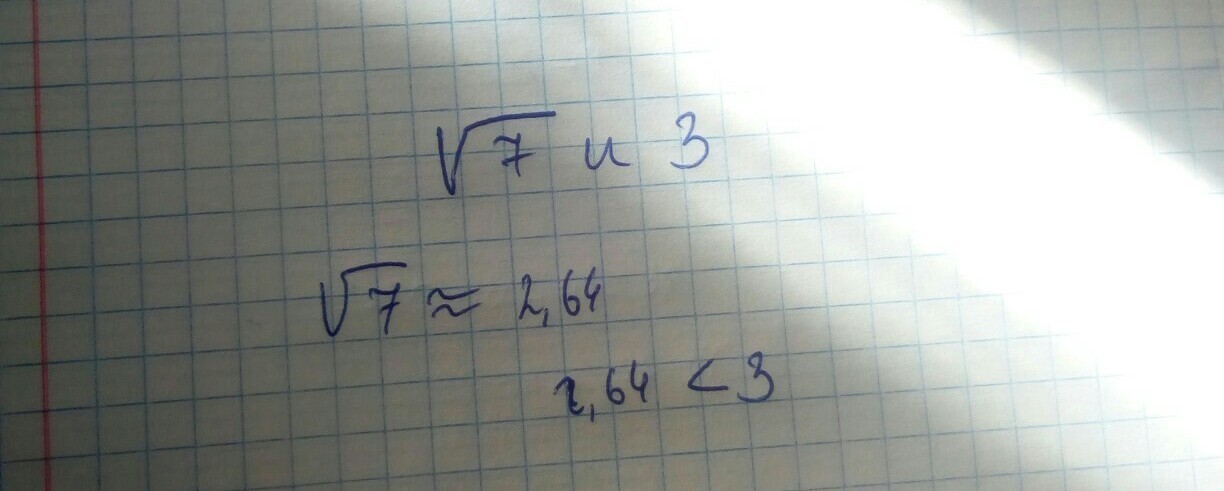 √7 и 3
√7 ≈ 2,64
2,64 < 3